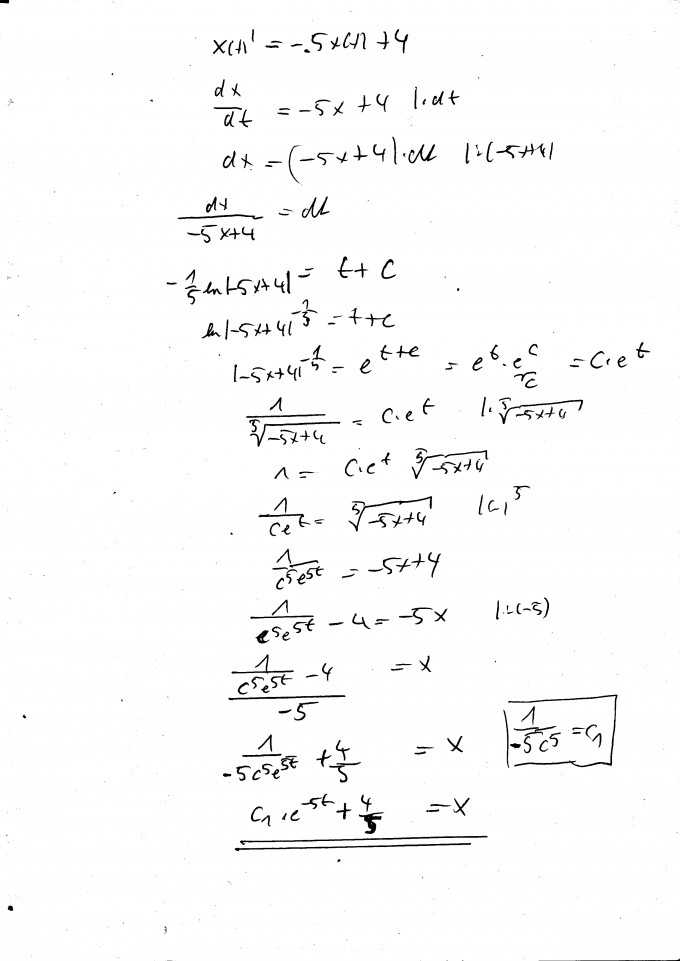 x(t)' = -.5x(t) + 4
dx/dt = -5x + 4 |·dt
dx = (-5x+4)·dt |:(-5x+4)
dx/(-5x+4) = dt
-1/5 ln|-5x+4| = t + C
ln|-5x+4|^(-1/5) = t+c
|-5x+4|^(-1/5) = e^(t+c) = e^t · e^c = C·e^t
1/⁵√(-5x+4) = C·e^t |·⁵√(-5x+4)
1 = C·e^t ⁵√(-5x+4)
1/(Ce^t) = ⁵√(-5x+4) |( )^5
1/(C^5e^(5t)) = -5x+4
1/(C^5e^(5t)) - 4 = -5x |:(-5)
(1/(C^5e^(5t)) - 4)/(-5) = x
1/(-5C^5e^(5t)) + 4/5 = x
1/(-5C^5) = C₁
C₁·e^(-5t) + 4/5 = x